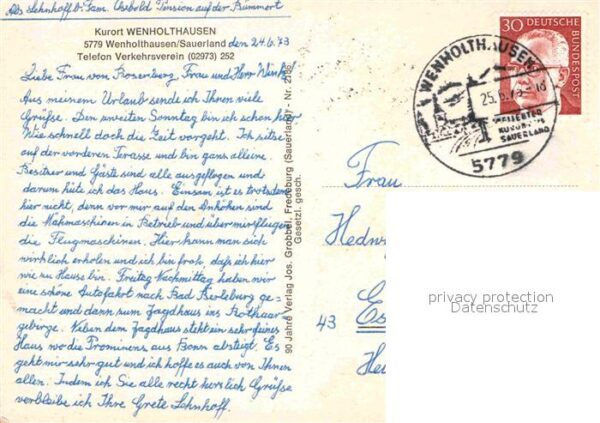 Abs. Lehnhoff b. Fam. Pension auf der
Kurort WENHOLTHAUSEN
5779 Wenholthausen/Sauerland den 24.6.73
Telefon Verkehrsverein (02973) 252
Liebe Frau von Rosenberg, Frau und Herr
Aus meinem Urlaub sende ich Ihnen viele
Grüße. Den zweiten Sonntag bin ich schon hier
Wie schnell doch die Zeit vergeht. Ich sitze
auf der vorderen Terasse und bin ganz alleine
Besitzer und Gäste sind alle ausgeflogen und
darum hüte ich das Haus. Einsam ist es trotzdem
hier nicht, denn vor mir auf den Anhöhen sind
die Mähmaschinen in Betrieb und über mir fliegen
die Flugmaschinen. Hier kann man sich
wirklich erholen und ich bin froh, daß ich hier
wie zu Hause bin. Freitag Nachmittag haben wir
eine schöne Autofahrt nach Bad Berleburg ge-
macht und dann zum Jagdhaus ins Rothaar
gebirge. Neben dem Jagdhaus steht ein sehr feines
Haus wo die Prominenz aus Bonn absteigt. Es
geht mir sehr gut und ich hoffe es auch von Ihnen
allen. Indem ich Sie alle recht herzlich Grüße
verbleibe ich Ihre Grete Lehnhoff.
90 Jahre Verlag Jos. Grobbel, Fredeburg (Sauerland) - Nr. 2186
Gesetzl. gesch.
30 DEUTSCHE
BUNDESPOST
WENHOLTHAUSEN
25.6.73-18
KURORT IM
SAUERLAND
5779
Frau
Hedw
43 Es
He
privacy protection
Datenschutz